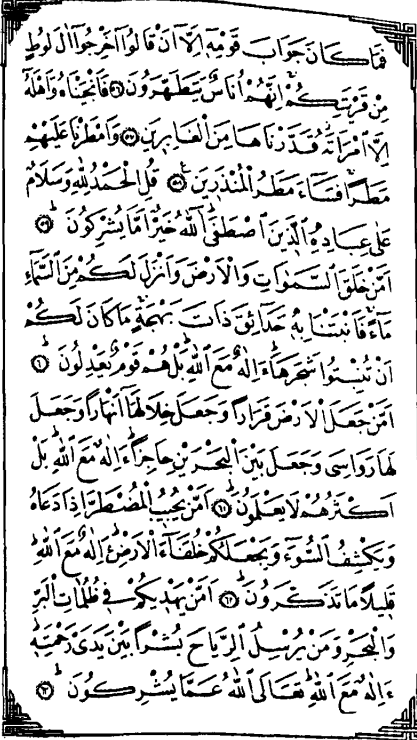 فَمَا كَانَ جَوَابَ قَوْمِهِ إِلَّا أَنْ قَالُوا أَخْرِجُوا آلَ لُوطٍ
مِنْ قَرْيَتِكُمْ إِنَّهُمْ أُنَاسٌ يَتَطَهَّرُونَ ﴿٥٦﴾ فَأَنْجَيْنَاهُ وَأَهْلَهُ
إِلَّا امْرَأَتَهُ قَدَّرْنَاهَا مِنَ الْغَابِرِينَ ﴿٥٧﴾ وَأَمْطَرْنَا عَلَيْهِمْ
مَطَرًا فَسَاءَ مَطَرُ الْمُنْذَرِينَ ﴿٥٨﴾ قُلِ الْحَمْدُ لِلَّهِ وَسَلَامٌ
عَلَى عِبَادِهِ الَّذِينَ اصْطَفَى آللَّهُ خَيْرٌ أَمَّا يُشْرِكُونَ ﴿٥٩﴾
أَمَّنْ خَلَقَ السَّمٰوَاتِ وَالْأَرْضَ وَأَنْزَلَ لَكُمْ مِنَ السَّمَاءِ
مَاءً فَأَنْبَتْنَا بِهِ حَدَائِقَ ذَاتَ بَهْجَةٍ مَا كَانَ لَكُمْ
أَنْ تُنْبِتُوا شَجَرَهَا ءَإِلٰهٌ مَعَ اللَّهِ بَلْ هُمْ قَوْمٌ يَعْدِلُونَ ﴿٦٠﴾
أَمَّنْ جَعَلَ الْأَرْضَ قَرَارًا وَجَعَلَ خِلَالَهَا أَنْهَارًا وَجَعَلَ
لَهَا رَوَاسِيَ وَجَعَلَ بَيْنَ الْبَحْرَيْنِ حَاجِزًا ءَإِلٰهٌ مَعَ اللَّهِ بَلْ
أَكْثَرُهُمْ لَا يَعْلَمُونَ ﴿٦١﴾ أَمَّنْ يُجِيبُ الْمُضْطَرَّ إِذَا دَعَاهُ
وَيَكْشِفُ السُّوءَ وَيَجْعَلُكُمْ خُلَفَاءَ الْأَرْضِ ءَإِلٰهٌ مَعَ اللَّهِ
قَلِيلًا مَا تَذَكَّرُونَ ﴿٦٢﴾ أَمَّنْ يَهْدِيكُمْ فِي ظُلُمَاتِ الْبَرِّ
وَالْبَحْرِ وَمَنْ يُرْسِلُ الرِّيَاحَ بُشْرًا بَيْنَ يَدَيْ رَحْمَتِهِ
ءَإِلٰهٌ مَعَ اللَّهِ تَعَالَى اللَّهُ عَمَّا يُشْرِكُونَ ﴿٦٣﴾